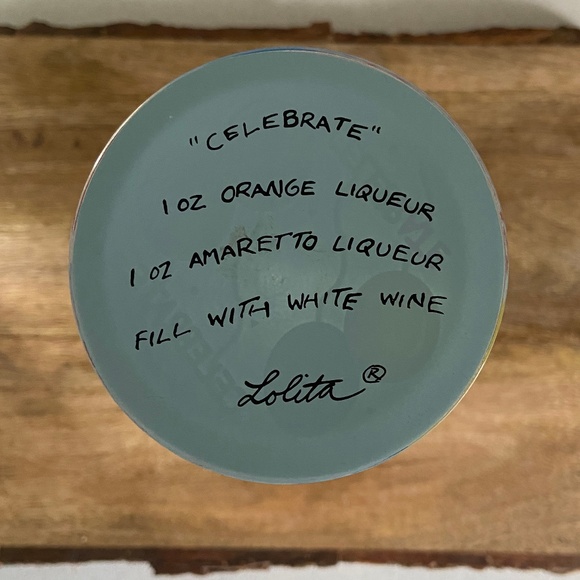 "CELEBRATE"
1 OZ ORANGE LIQUEUR
1 OZ AMARETTO LIQUEUR
FILL WITH WHITE WINE
Lolita ®